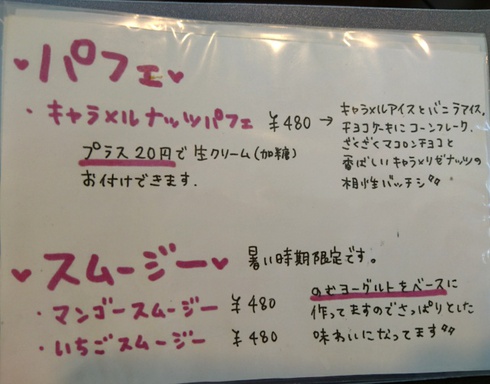 ♥パフェ♥
・キャラメルナッツパフェ ¥480 → キャラメルアイスとバニラアイス。
チョコケーキにコーンフレーク。
ざくざくマコロンチョコと
香ばしいキャラメリゼナッツの
相性バッチシ
プラス20円で生クリーム(加糖)
お付けできます。
♥スムージー♥ 暑い時期限定です。
・マンゴースムージー ¥480
・いちごスムージー ¥480
のむヨーグルトをベースに
作ってますのでさっぱりとした
味わいになってます